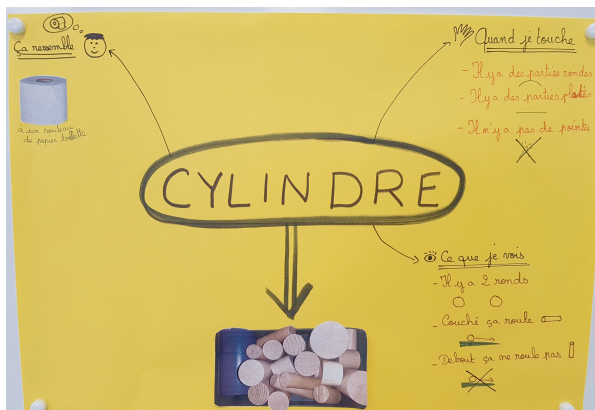 Ça ressemble
à un rouleau
de papier toilette
Quand je touche
- Il y a des parties rondes
- Il y a des parties plates
- Il n'y a pas de pointu
CYLINDRE
Ce que je vois
- Il y a 2 ronds
- Couché ça roule
- Debout ça ne roule pas